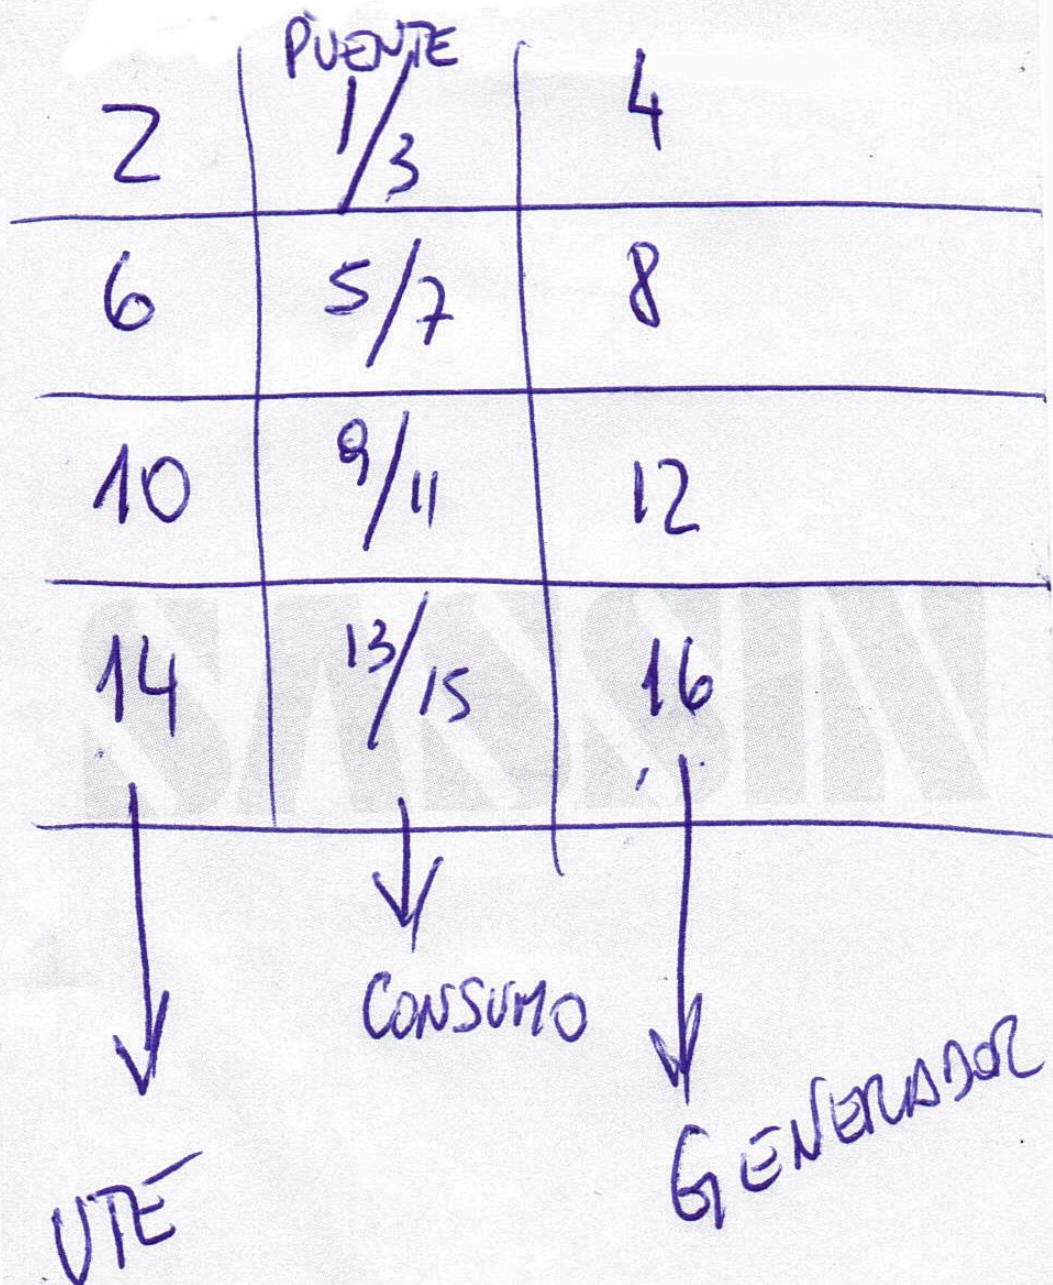 PUENTE
2 1/3 4
6 5/7 8
10 9/11 12
14 13/15 16
CONSUMO
GENERADOR
UTE